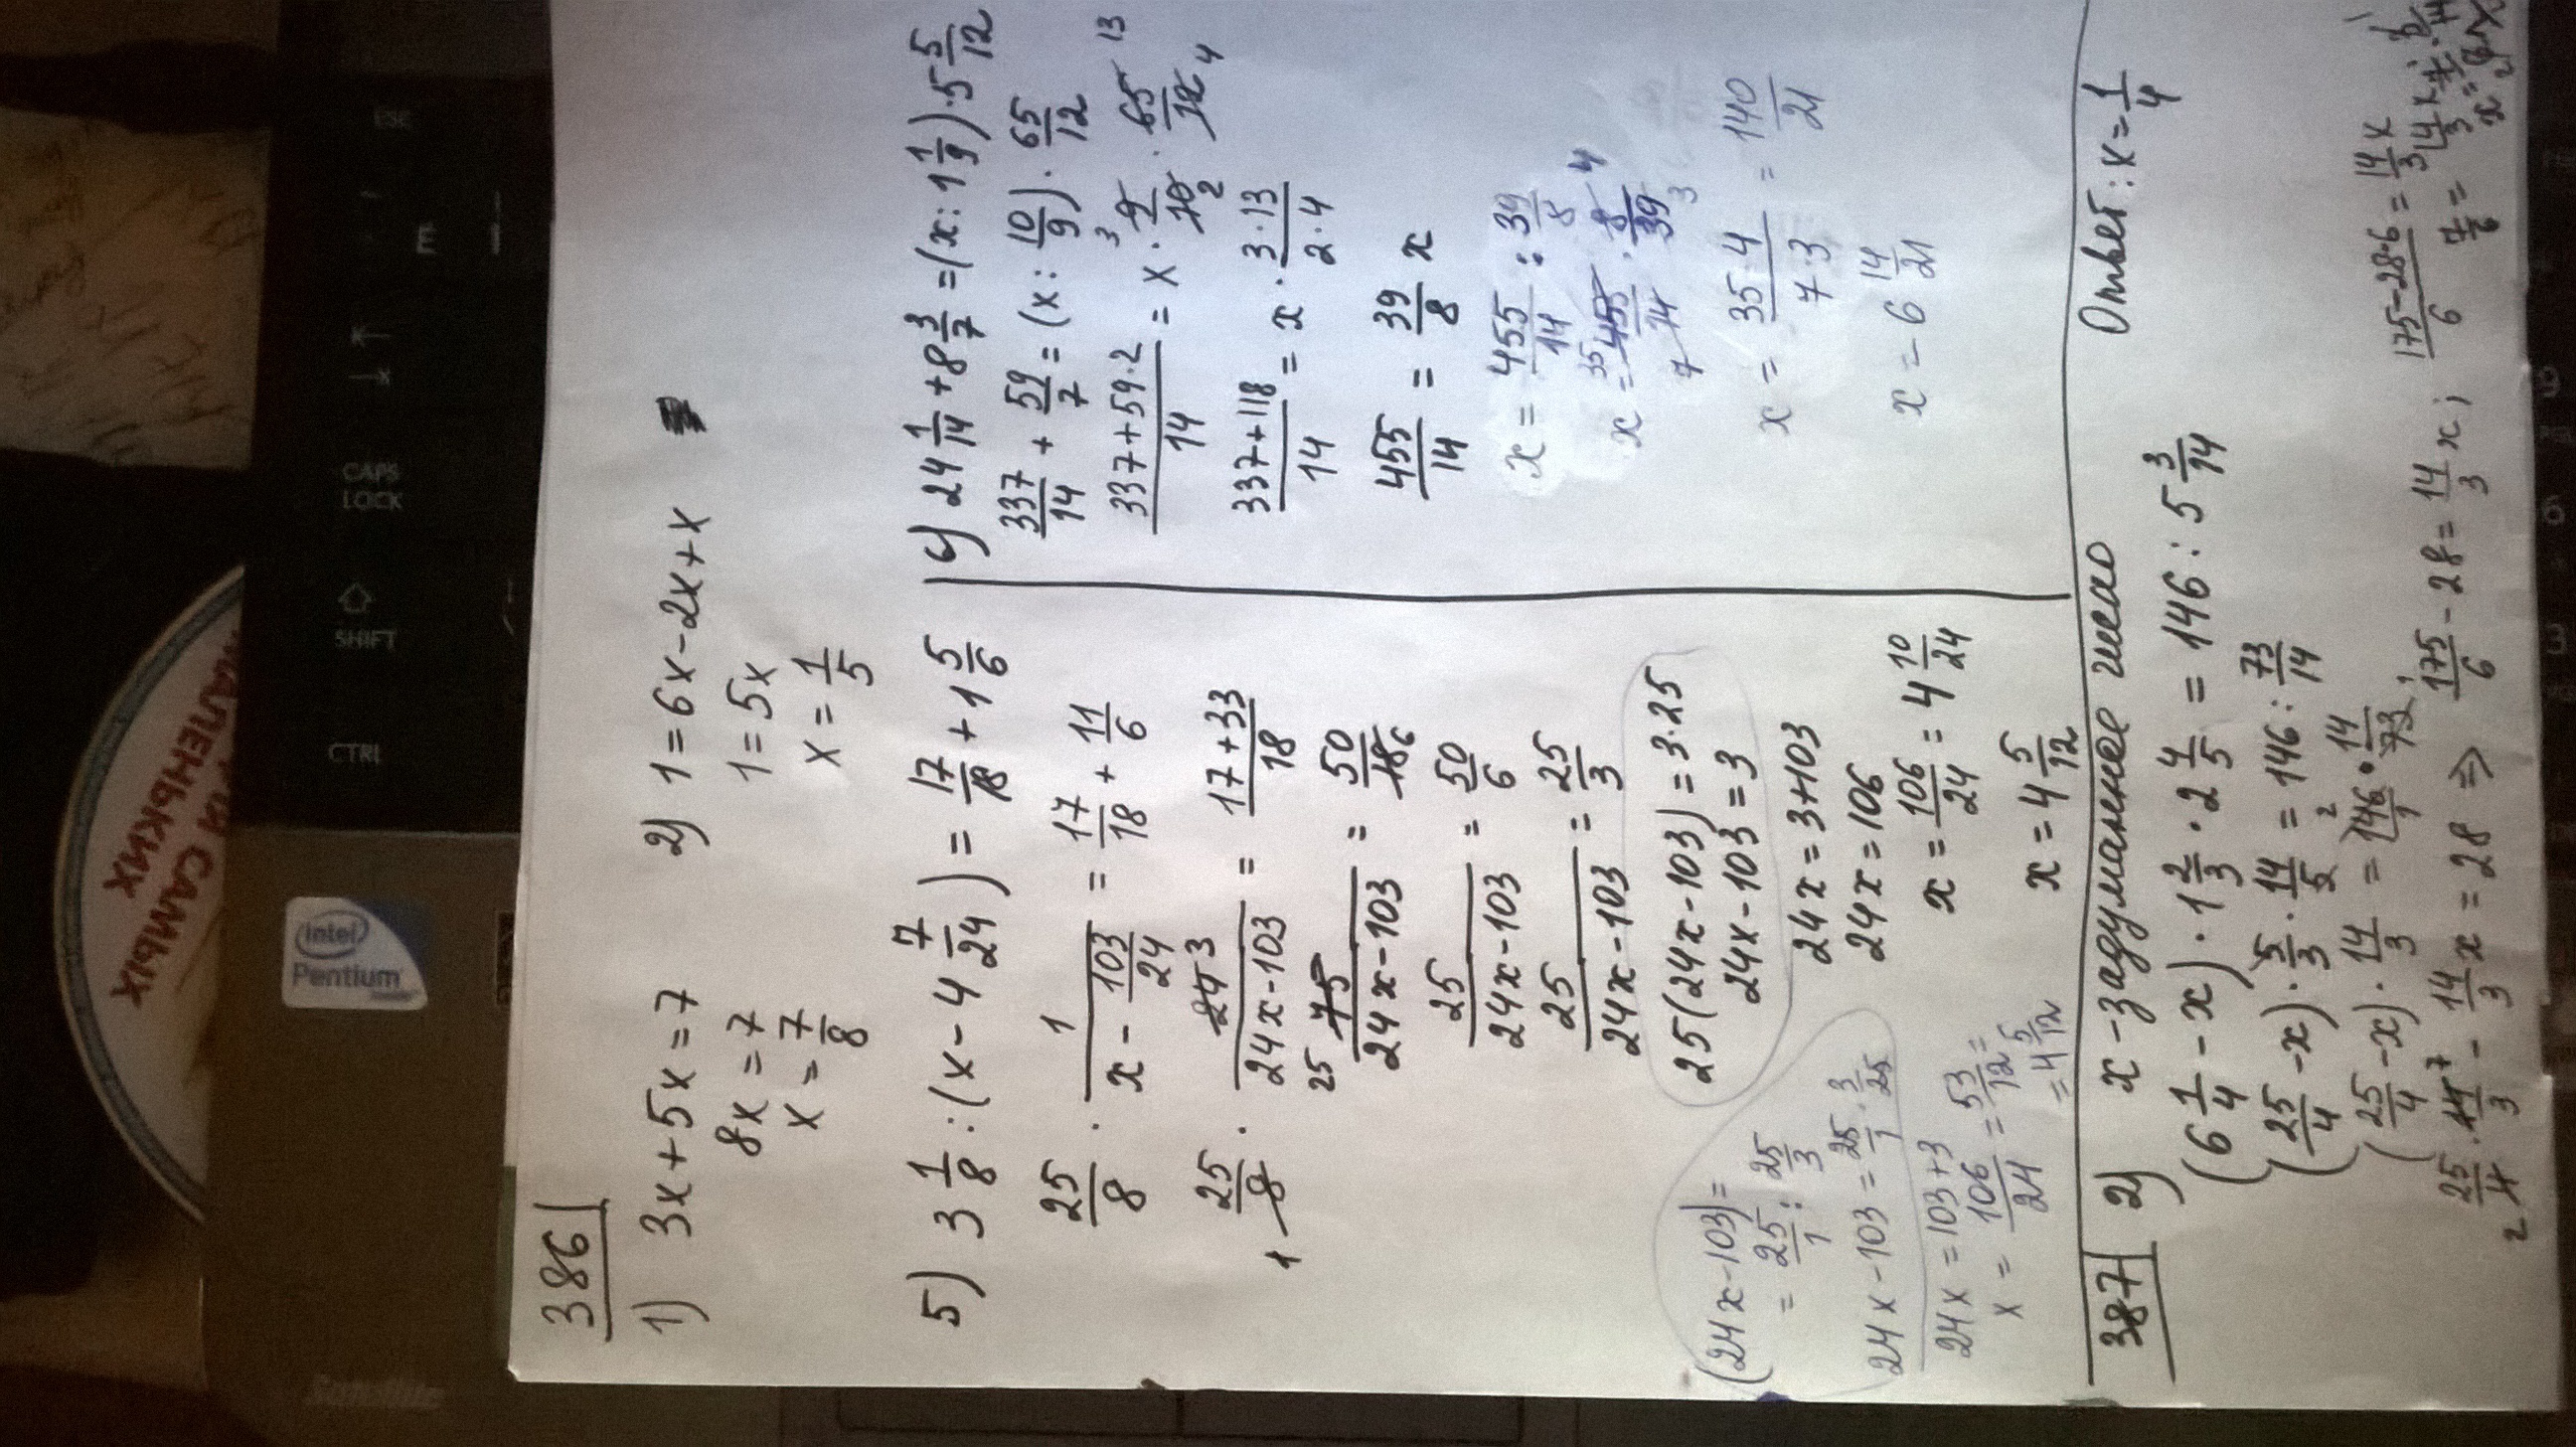 386
1) 3x+5x=7
8x=7
x=7/8
2) 1=6x-2x+x
1=5x
x=1/5
5) 3 1/8 : (x - 4 7/24) = 17/18 + 1 5/6
25/8 · 1/(x - 103/24) = 17/18 + 11/6
1 25/8 · 24 3/(24x-103) = (17+33)/18
25 75/(24x-103) = 50/18 6
25/(24x-103) = 50/6
25/(24x-103) = 25/3
25(24x-103)=3·25
24x-103=3
24x=3+103
24x=106
x=106/24=4 10/24
x=4 5/12
(24x-103)=
= 25/1 : 25/3
24x-103 = 25/1 · 3/25
24x=103+3
x= 106/24 = 53/12 =
= 4 5/12
4) 24 1/14 + 8 3/7 = (x : 1 1/9) · 5 5/12
337/14 + 59/7 = (x : 10/9) · 65/12
(337+59·2)/14 = x · 3 9/10 2 · 65 13/12 4
(337+118)/14 = x · (3·13)/(2·4)
455/14 = 39/8 x
x = 455/14 : 39/8
x = 35 455/7 14 · 8 4/39 3
x = (35·4)/(7·3) = 140/21
x = 6 14/21
387
2) x - задуманное число
Ответ: x=1/4
(6 1/4 - x) · 1 2/3 · 2 4/5 = 146 : 5 3/14
(25/4 - x) · 5/3 · 14/5 = 146 : 73/14
(25/4 - x) · 14/3 = 2 146/1 · 14/73;
25/4 2 · 14 7/3 - 14/3 x = 28 ⇒ 175/6 - 28 = 14/3 x; (175-28·6)/6 = 14/3 x
7/6 = 14/3 x